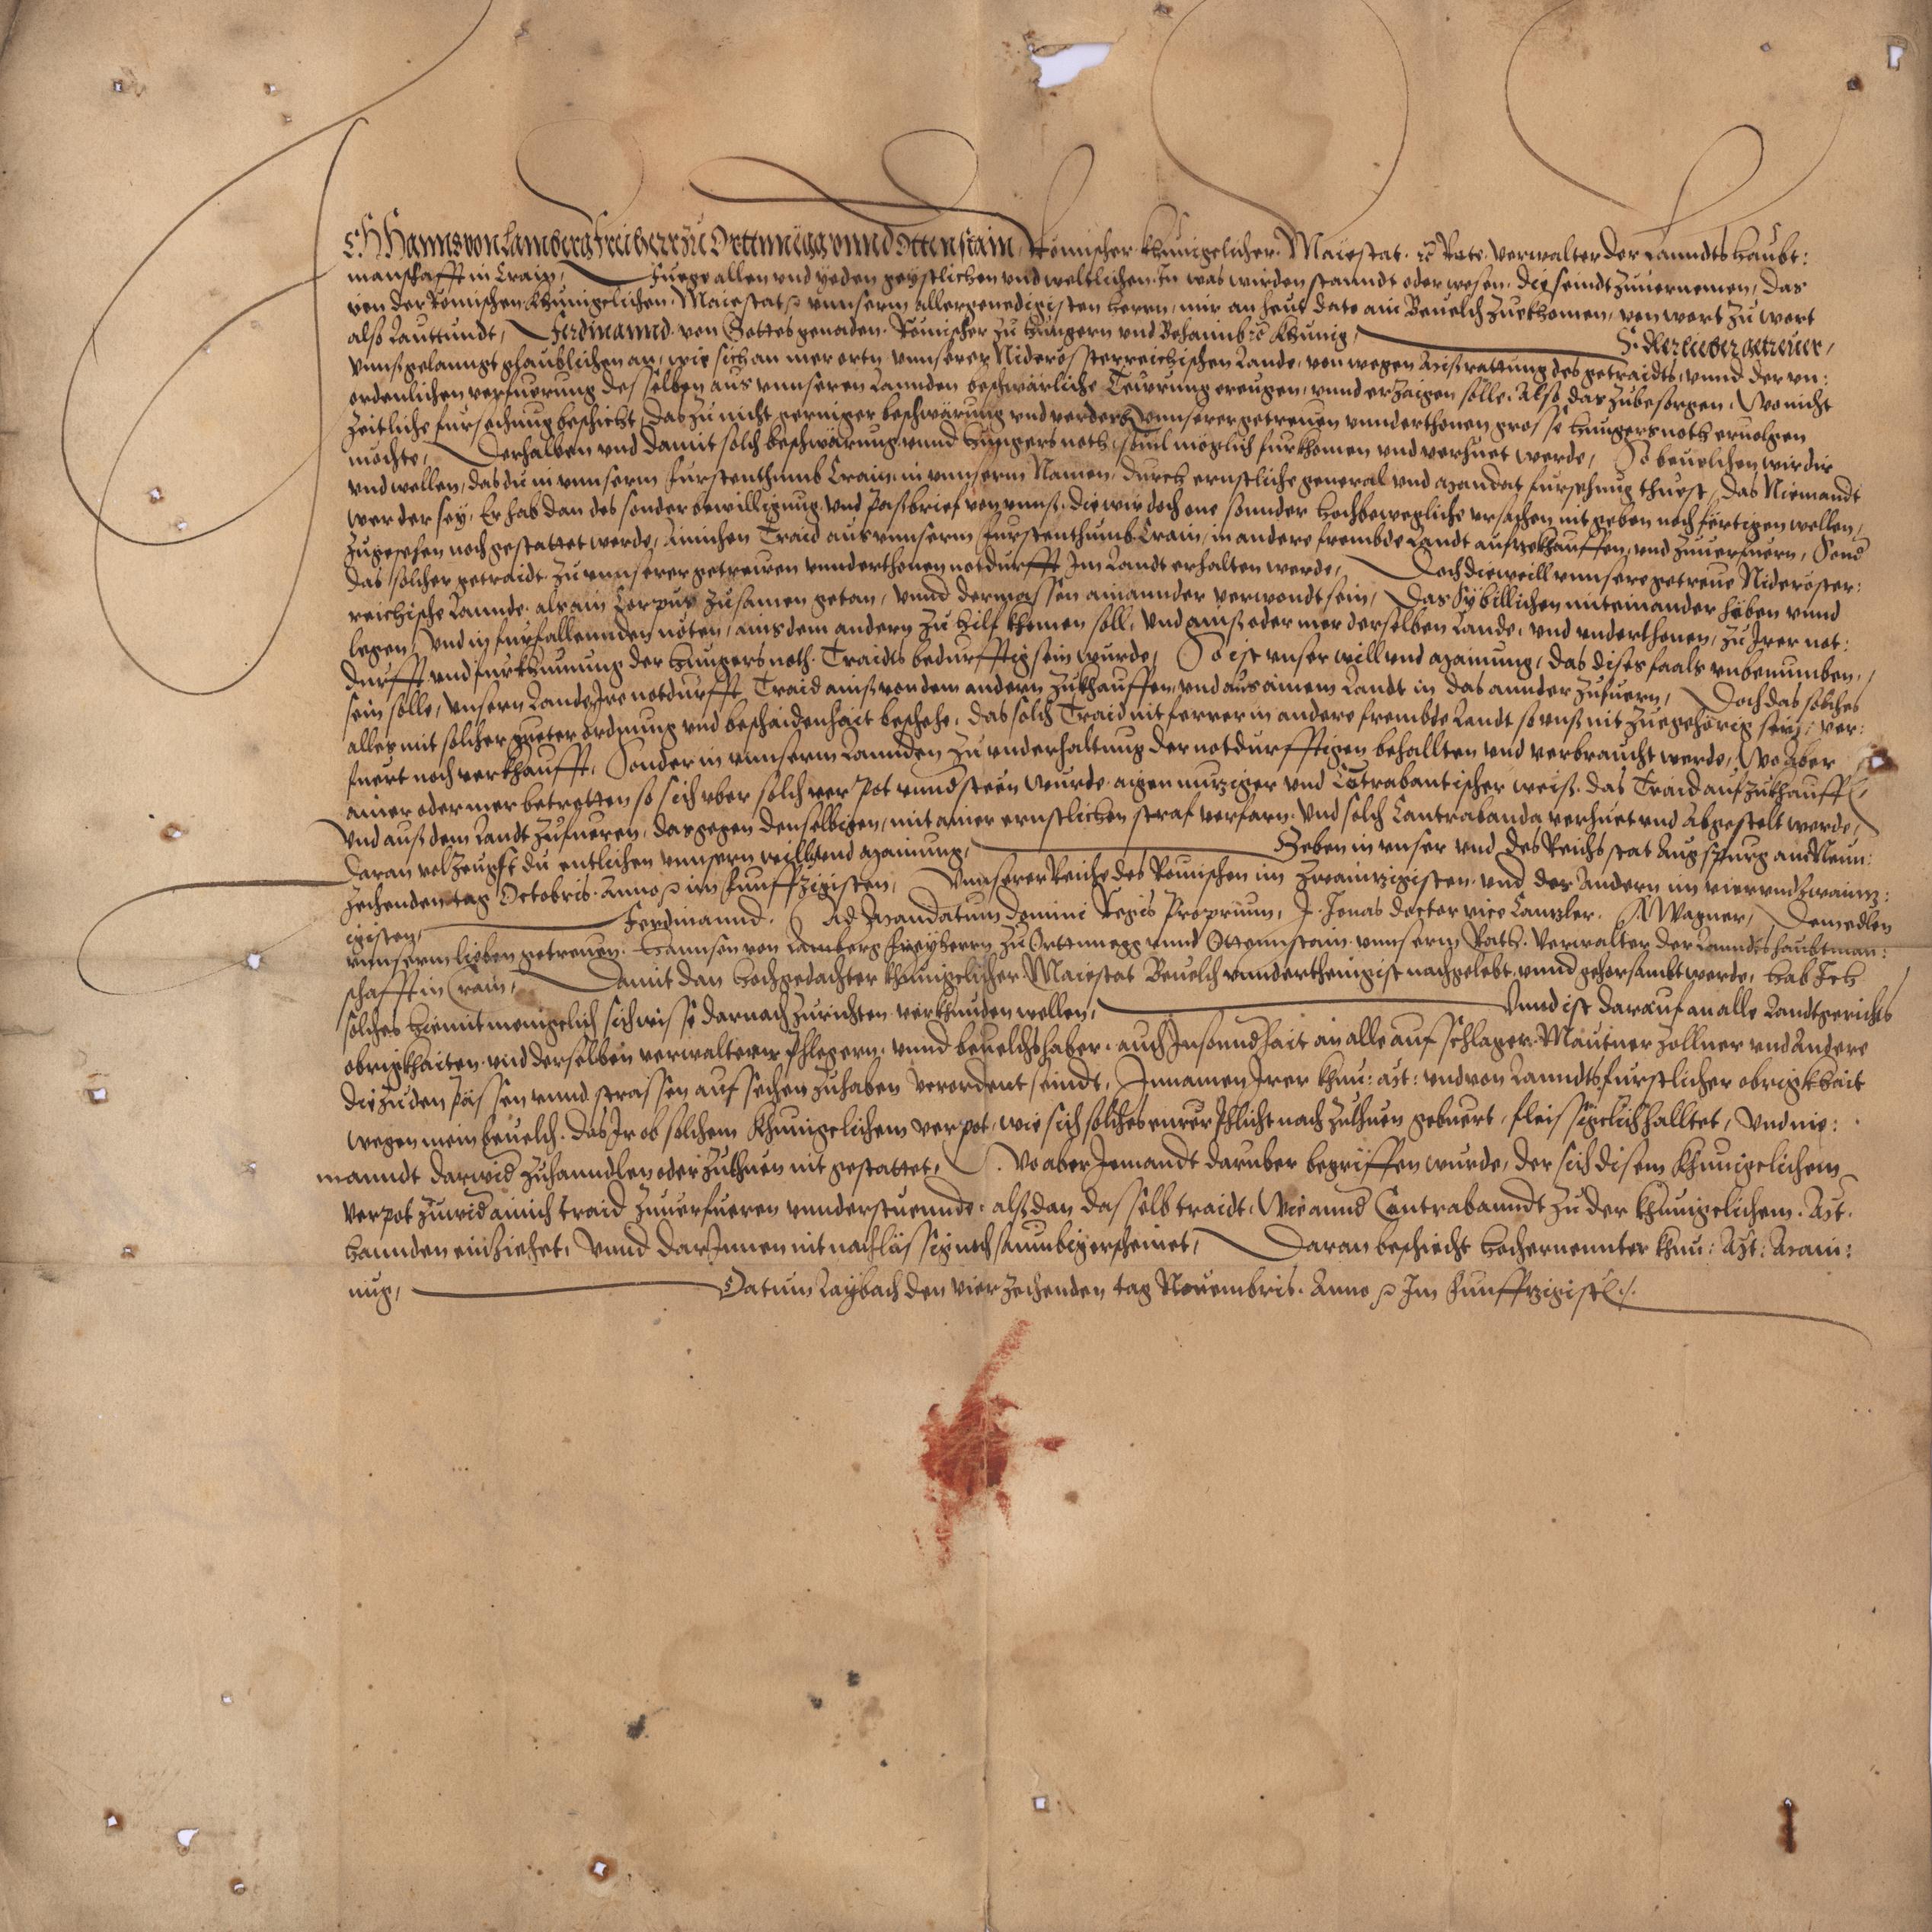 Ich Hanns von Lamberg Freiherr zu Orttenegg vnnd Ottenstain, Römischer Khunigelicher. Maiestat. rc Rate. verwalter der Lanndtshaubt:
manschafft in Crain, Fuege allen vnd yeden geystlichen vnd weltlichen. In was wirden stanndt oder wesen. die seindt zuuernemen, das
von der Römischen Khunigelichen. Maiestat rc vnnserm allergenedigisten herrn, mir an heut dato ain Beuelch zuekhomen, von wort zu wort
also Lauttundt, Ferdinannd. von Gottes genaden. Römischer zu Hungern vnd Behaimb rc Khunig, Edler lieber getreuer,
vnnß gelanngt glaublichen an, wie sich an mer ortn vnnserer Niderösterreichischen Lande, von wegen mißrattung des getraidts, vnnd der vn:
ordenlichen verfuerung desselben aus vnnseren Lannden beschwärliche Teurung ereugen, vnnd erzaigen solle. Also das zubesorgen. Wo nicht
zeitliche fursechung beschiecht, das zu nicht geringer beschwärung vnd verderb vnnserer getreuen vnnderthonen grosse hungersnoth eruolgen
möchte, Derhalben vnd damit solch beschwärung vnnd hungersnoth, souil möglich furkhomen vnd verhuet werde, So beuelchen wir dir
vnd wellen, das du in vnnserm Furstenthumb Crain, in vnnserm Namen, durch ernstliche general vnd mandat fursehung thuest, das Niemandt
wer der sey, Er hab dan des sonder bewilligung. vnd paßbrief von vnns. die wir doch one sonnder hochbewegliche vrsachen nit geben noch fertigen wellen,
zugesehen noch gestattet werde, Ainichen Traid aus vnnserm Furstenthumb Crain, in andere frembde Landt aufzekhauffen, vnd zuuerfuern, Sonder
das solcher getraidt. zu vnnserer getrewen vnnderthonen notdurfft Im Landt erhalten werde, Doch dieweill vnnsere getreue Nideröster:
reichische Lannde. als ain Corpus zusamen getan, vnnd dermassen ainannder verwondt sein, das sy billichen miteinander heben vnnd
legen, vnd in furfallennden nöten, ains dem andern zu hilf khomen soll, vnd ainß oder mer derselben Lande, vnd vnderthonen, zu Irer not:
durfft vnd furkhumung der hungersnoth. Traidts bedurfftig sein wurde, So ist vnser will vnd mainung, das dises faals vnbenumben,
sein solle, vnsern Landen Ire notdurfft Traid ainß von dem andern zukhauffen, vnd aus ainem Landt in das annder zufuern, Doch das solches
alles mit solcher gueter ordnung vnd beschaidenhait beschehe, das solch Traid nit ferrer in andere frembde Landt so vnß nit zuegehörig sein, ver:
fuert noch verkhaufft, Sonder in vnnserm Lannden zu vnderhaltung der notdurfftigen behallten vnd verbraucht werde, Wo aber
ainer oder mer betretten so sich vber solch verpot vnndsteen wurde aigennutziger vnd Cotrabantischer weiß. das Traid aufzukhauffn,
vnd auß dem Landt zufueren. das gegen denselbigen, mit ainer ernstlichen straf verfarn. vnd solch Contrabanda verhuet vnd Abgestelt werde,
Daran volzeugst du entlichen vnnsern will vnd mainung, Geben in vnser vnd des Reichs stat Augspurg am Neun:
zechenden tag Octobris. Anno rc im funffzigisten, Vnnserer Reiche des Römischen im zwainzigisten. vnd der Andern im viervndzwainz:
igisten, Ferdinannd. Ad Mandatum Domini Regis Proprium, J. Jonas doctor vice Canzler. Wagner, Dem edlen
vnnserm lieben getreuen. Hannsen von Lamberg Freyherrn zu Ortteneggvnnd Ottennstain. vnnserm Rath. Verwalter der Lanndtshaubtman:
schafft in Crain, Damit dan hochgedachter Khunigelicher Maiestat Beuelch vnnderthenigist nachgelebt. vnnd gehorsambt werde, hab Ich
solches hiemit menigelich sich wisse darnach zurichten. verkhunden wellen, Vnnd ist darauf an alle Landtgerichts
obrigkhaiten. vnd derselben verwaltern Phlegern. vnnd beuelchshaber. auch Insonndhait an alle aufschlager Mautner zollner vnd Andere
die zu den Pässen vnnd strassen aufsechen zuhaben verordent seindt, Innamen Irer Khu: Mt: vnd von Lanndtsfurstlicher obrigkhait
wegen mein beuelch. das Ir ob solchem Khunigelichem verpot, wie sich solches eurer Phlicht nach zuthuen gebuert, fleissigelich halltet, vnd nie:
manndt darwid zuhanndlen oder zuthuen nit gestattet, Wo aber Jemandt daruber begriffen wurde, der sich disem Khunigelichem
verpot zuwid ainich traid zuuerfueren vnnderstuennde. alßdan dasselb traidt. Wie annd Contrabanndt zu der Khunigelichem. Mt.
hannden einziehet, vnnd darInnen nit nachlässig noch saumbig erscheinet, Daran beschiecht hochernennter Khu: Mt: Main:
ung, Datum Laybach den vierzechenden tag Nouembris. Anno rc Im Funffzigistn.